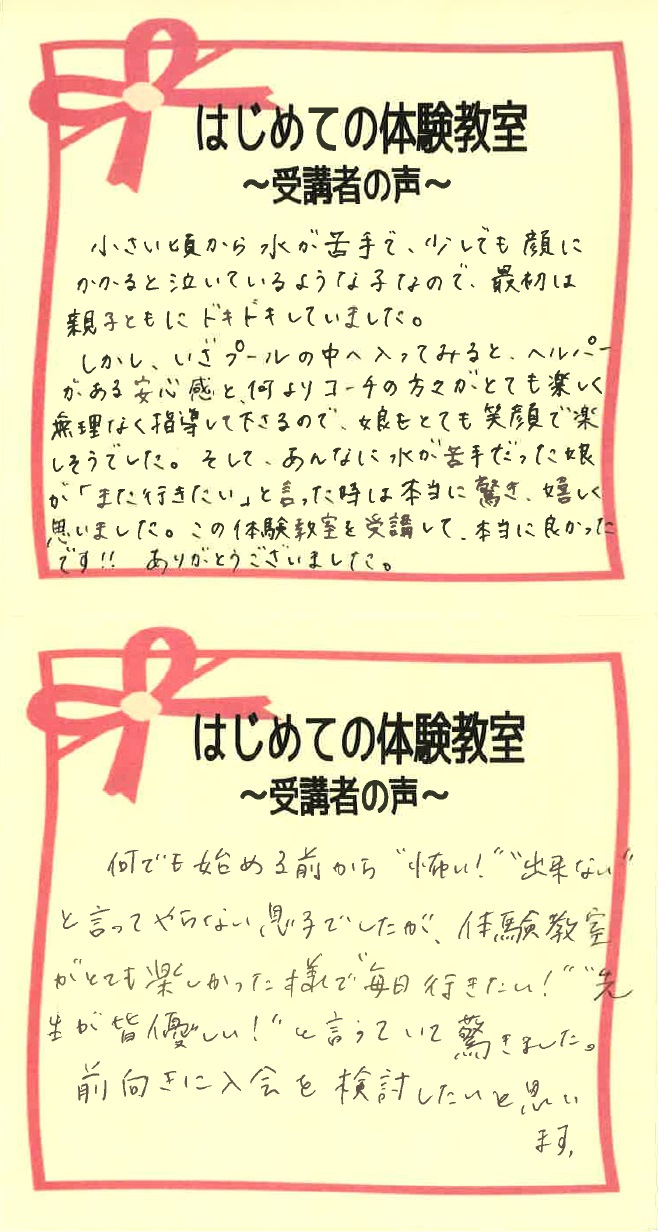 はじめての体験教室
～受講者の声～
小さい頃から水が苦手で、少しでも顔に
かかると泣いているような子なので、最初は
親子ともにドキドキしていました。
しかし、いざプールの中へ入ってみると、ヘルパー
がある安心感と、何よりコーチの方々がとても楽しく
無理なく指導して下さるので、娘もとても笑顔で楽
しそうでした。そして、あんなに水が苦手だった娘
が「また行きたい」と言った時は本当に驚き、嬉しく
思いました。この体験教室を受講して、本当に良かった
です!! ありがとうございました。
はじめての体験教室
～受講者の声～
何でも始める前から“怖い!”“出来ない”
と言ってやらない息子でしたが、体験教室
がとても楽しかった様で“毎日行きたい!”“先
生が皆優しい!”と言っていて驚きました。
前向きに入会を検討したいと思い
ます。